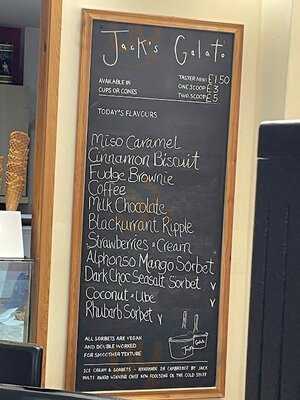 Jack's Gelato
AVAILABLE IN
CUPS OR CONES
TASTER MINI £1.50
ONE SCOOP £3
TWO SCOOP £5
TODAY'S FLAVOURS
Miso Caramel
Cinnamon Biscuit
Fudge Brownie
Coffee
Milk Chocolate
Blackurrant Ripple
Strawberries + Cream
Alphonso Mango Sorbet
Dark Choc Seasalt Sorbet V
Coconut + Ube V
Rhubarb Sorbet V
ALL SORBETS ARE VEGAN
AND DOUBLE WORKED
FOR SMOOTHER TEXTURE
Jack's Gelato
ICE CREAM & SORBETS - HANDMADE IN CAMBRIDGE BY JACK
MULTI AWARD WINNING CHEF NOW FOCUSING ON THE COLD STUFF